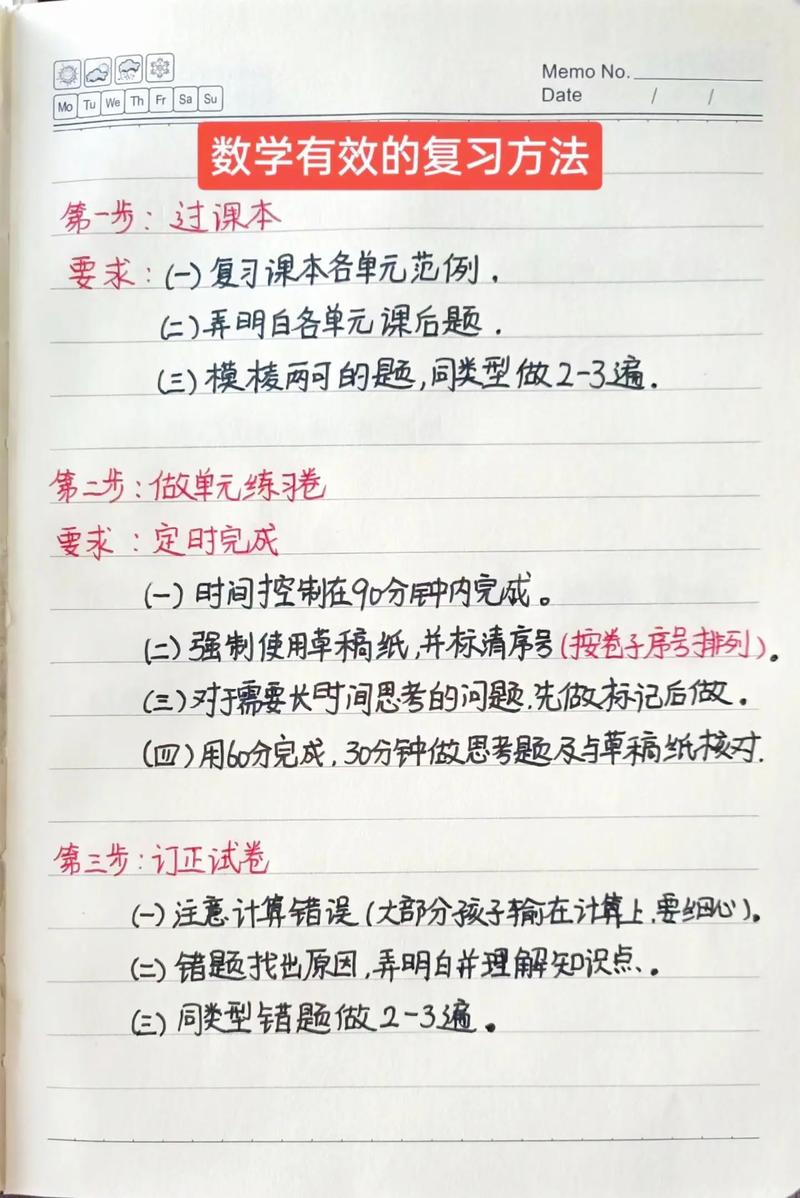 Memo No.
Mo Tu We Th Fr Sa Su
Date / /
数学有效的复习方法
第一步：过课本
要求：(一)复习课本各单元范例.
(二)弄明白各单元课后题.
(三)模棱两可的题,同类型做2-3遍.
第二步：做单元练习卷
要求：定时完成
(一)时间控制在90分钟内完成。
(二)强制使用草稿纸,并标清序号(按卷子序号排列)。
(三)对于需要长时间思考的问题.先做标记后做.
(四)用60分完成,30分钟做思考题及与草稿纸核对.
第三步：订正试卷
(一)注意计算错误(大部分孩子输在计算上.要细心)。
(二)错题找出原因,弄明白并理解知识点、.
(三)同类型错题做2-3遍.